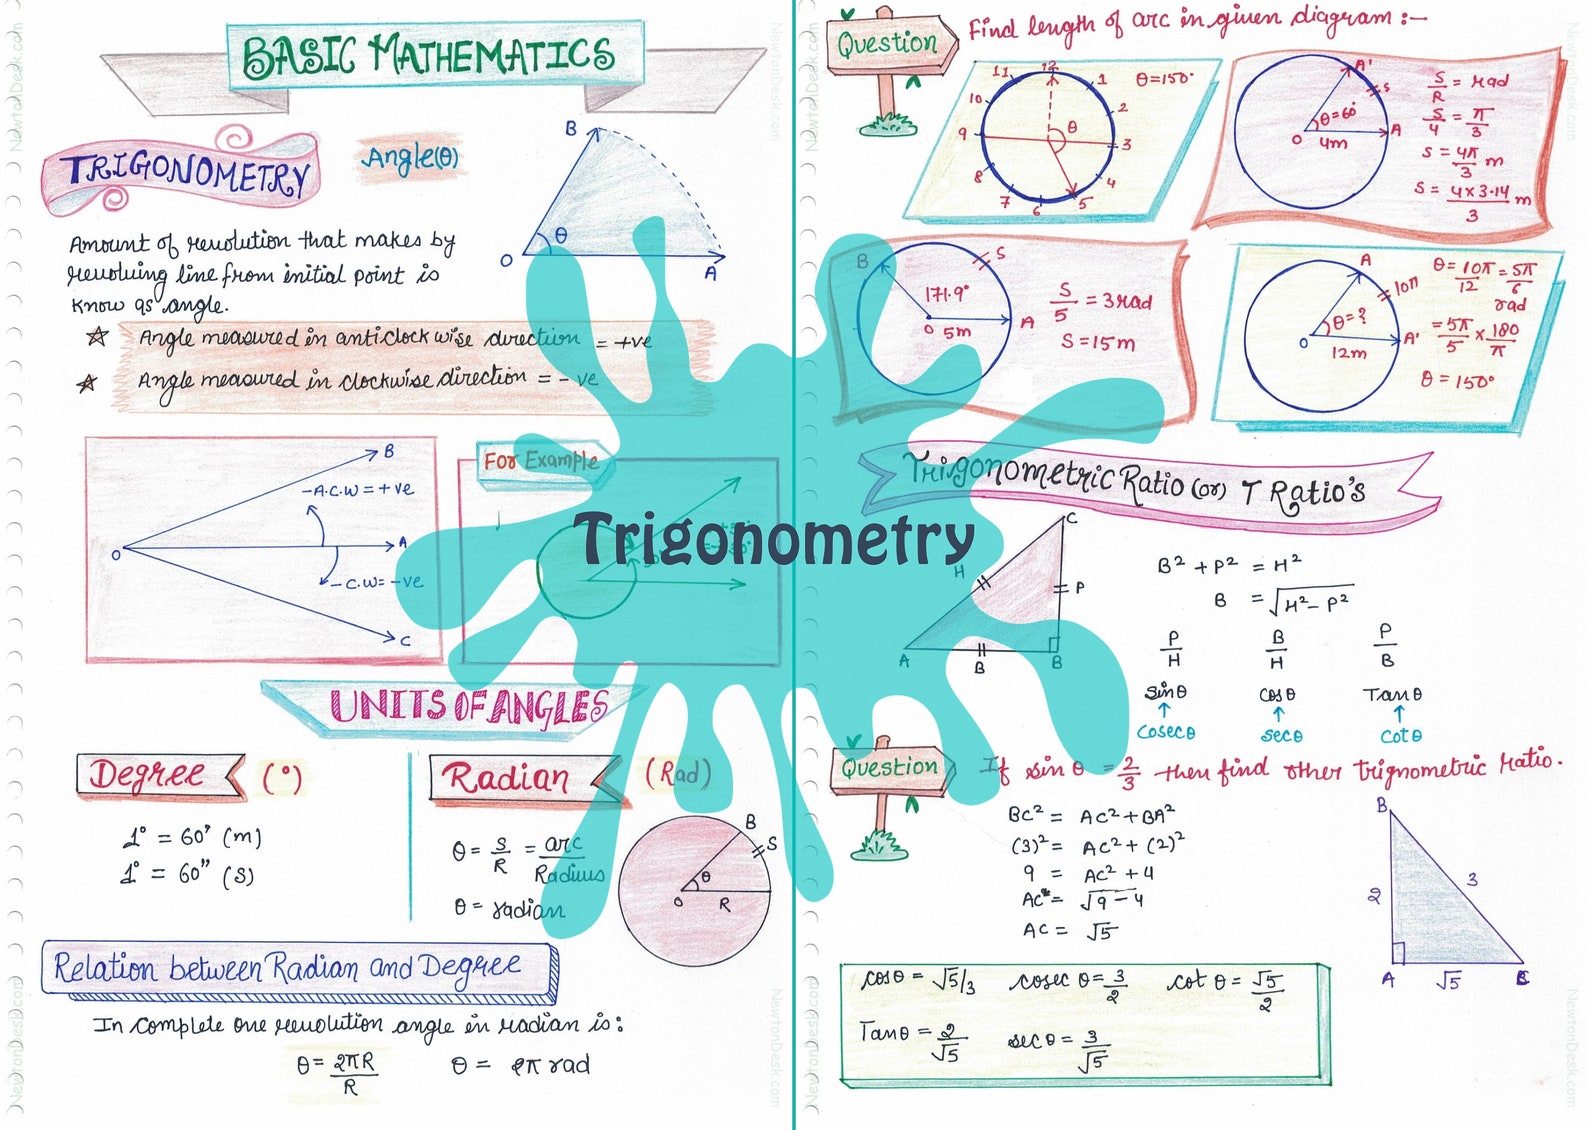 BASIC MATHEMATICS
TRIGONOMETRY
Angle(θ)
B
θ
O
A
Amount of revolution that makes by
revolving line from initial point is
know as angle.
Angle measured in anticlock wise direction = +ve
Angle measured in clockwise direction = - ve
B
-A.C.W = +ve
O
A
-C.W = -ve
C
For Example
Trigonometry
UNITS OF ANGLES
Degree (°)
1° = 60' (m)
1° = 60" (s)
Radian (Rad)
θ = S/R = arc/Radius
θ = radian
B
S
θ
O
R
Relation between Radian and Degree
In complete one revolution angle in radian is:
θ = 2πR/R θ = 2π rad
Question
Find length of arc in given diagram :-
12
11
1
θ = 150°
10
2
9
θ
3
8
4
7
6
5
A'
S
θ = 60°
O
4m
A
S/R = rad
S/4 = π/3
S = 4π/3 m
S = 4 x 3.14/3 m
B
S
171.9°
O
5m
A
S/5 = 3rad
S = 15m
A
10π
θ = ?
O
12m
A'
θ = 10π/12 = 5π/6 rad
= 5π/5 x 180/π
θ = 150°
Trigonometric Ratio (or) T Ratio's
C
H
P
A
B
B
B² + P² = H²
B = √H² - P²
P/H B/H P/B
sinθ cosθ Tanθ
↑ ↑ ↑
cosecθ secθ cotθ
Question
If sin θ = 2/3 then find other trignometric ratio.
BC² = AC² + BA²
(3)² = AC² + (2)²
9 = AC² + 4
AC = √9 - 4
AC = √5
B
2
3
A
√5
cosθ = √5/3 cosec θ = 3/2 cot θ = √5/2
Tanθ = 2/√5 secθ = 3/√5
NewtonDesk.com
NewtonDesk.com
NewtonDesk.com
NewtonDesk.com